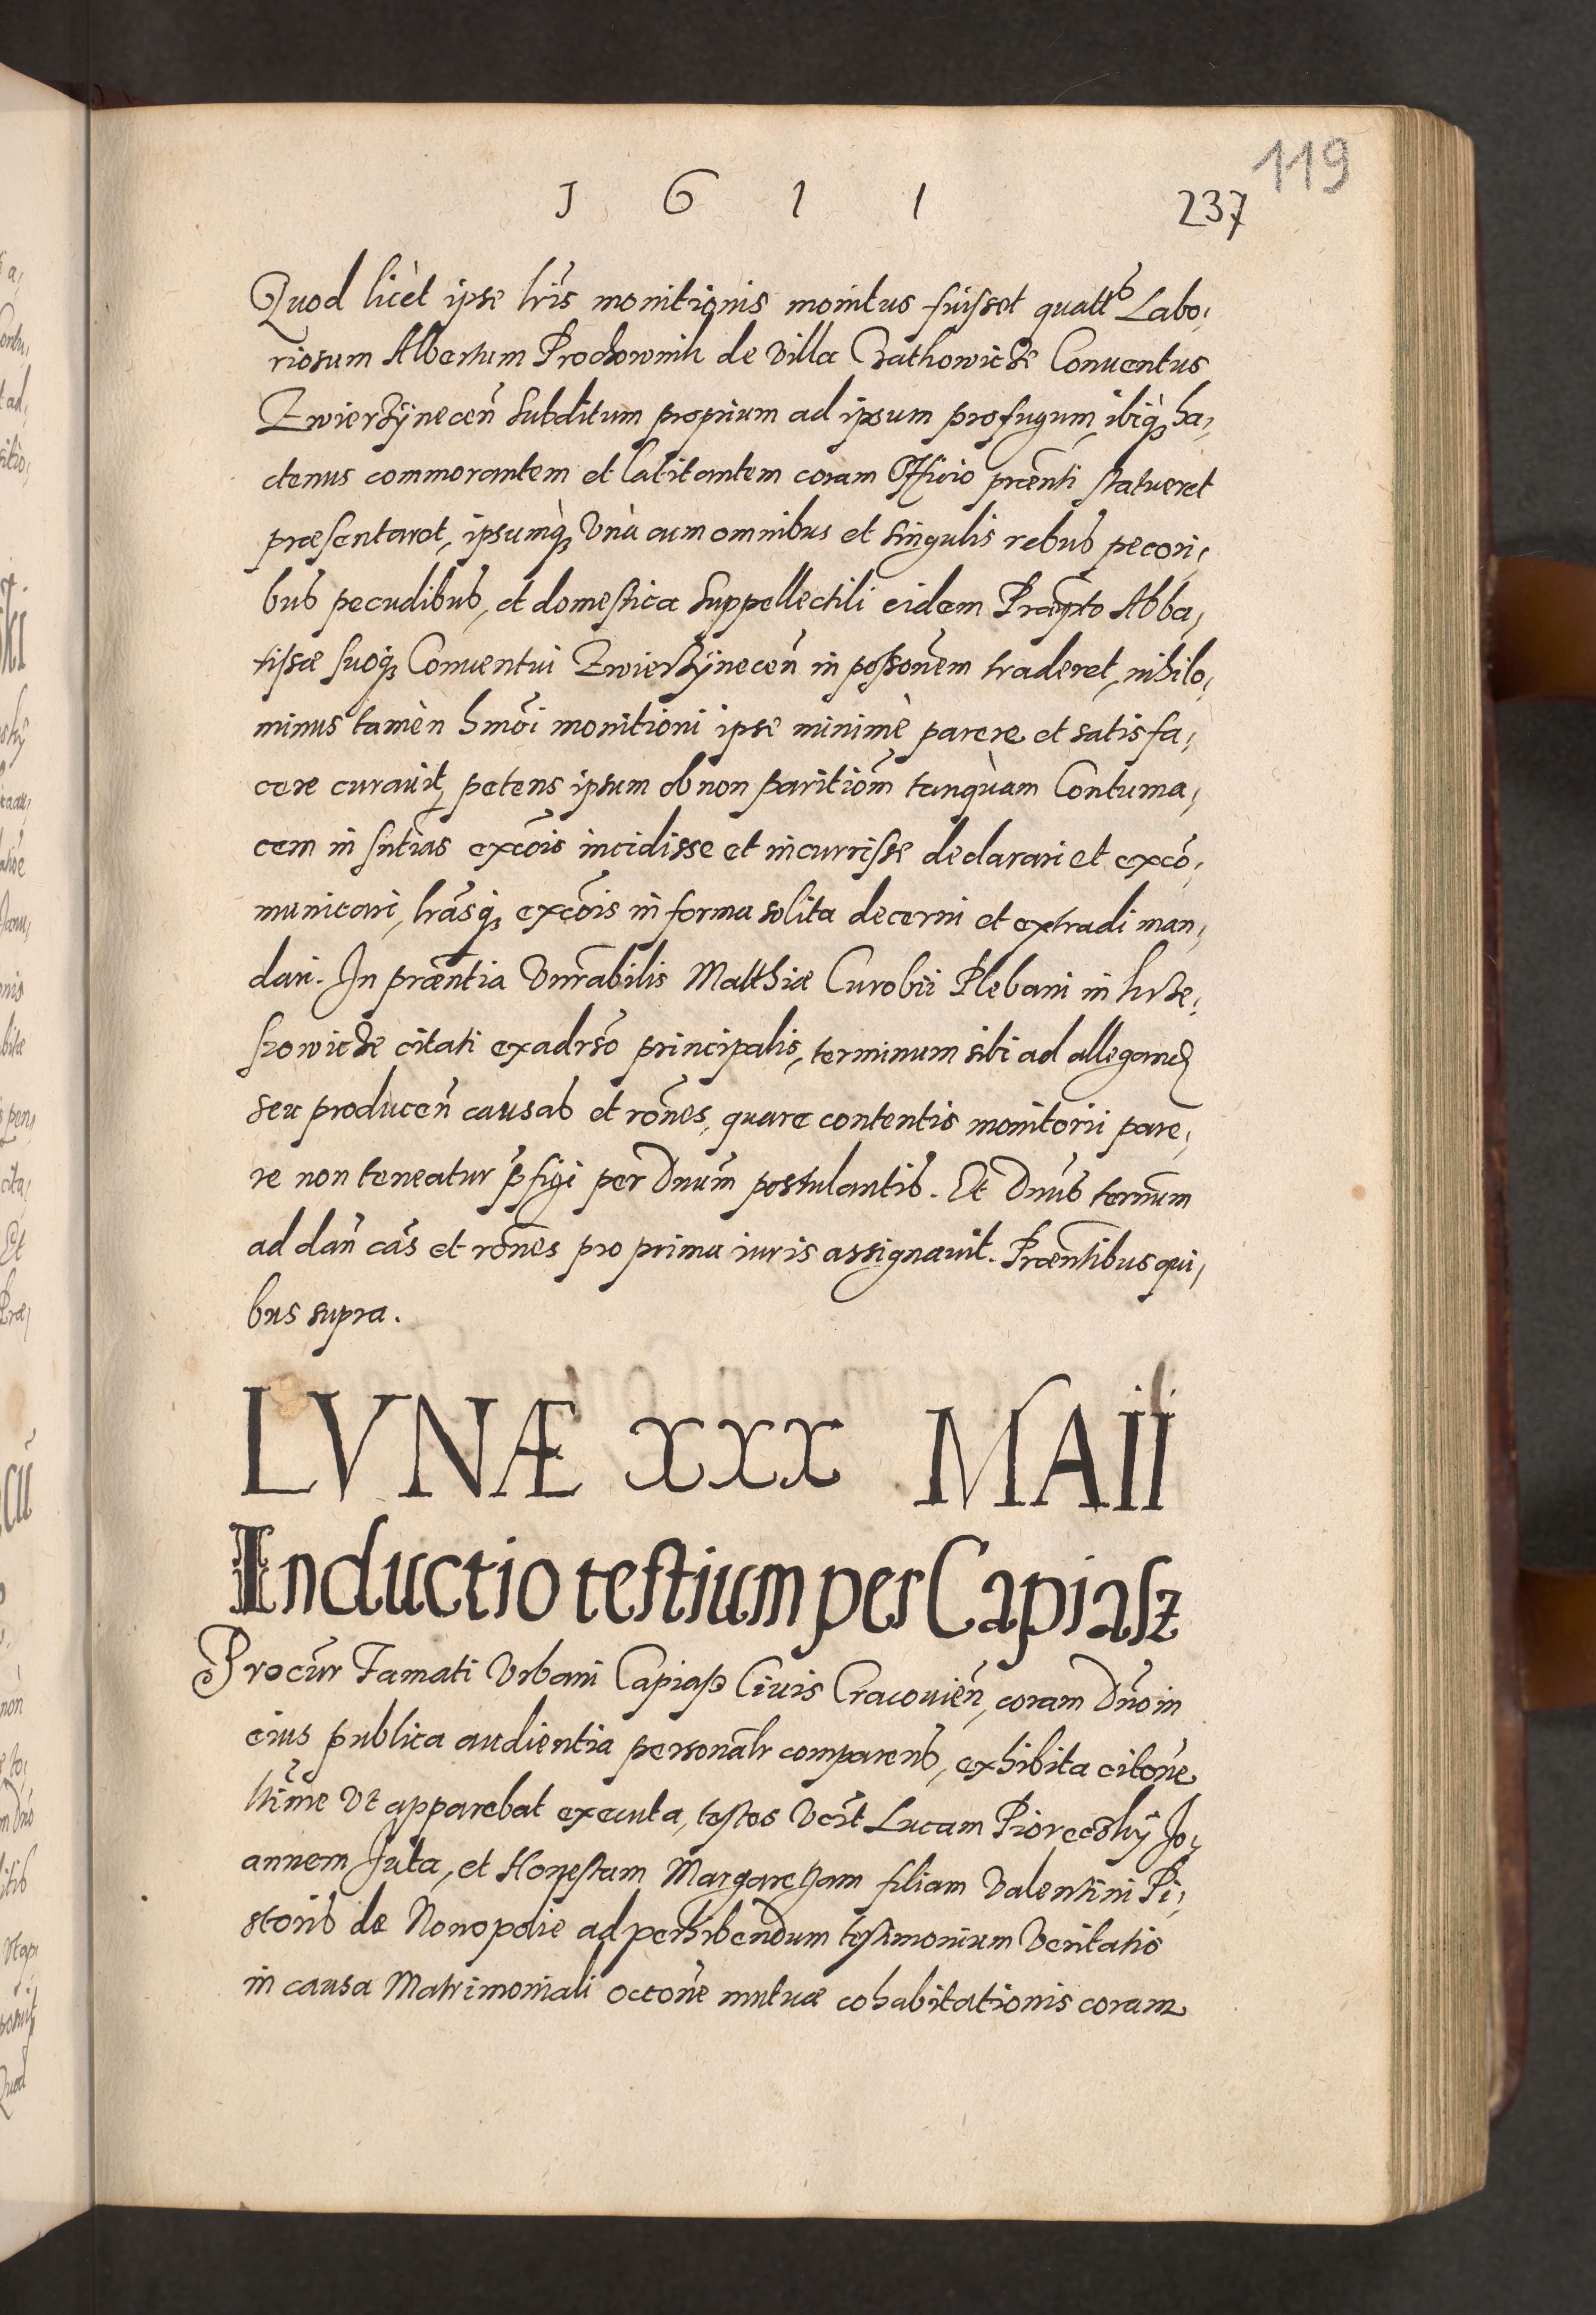 119
1 6 1 1
237
Quod licèt ipse lrīs monitionis monitus fuisset quatt⁹ Labo,
riosum Albertum Prochownik de villa Bathowicze Conuentus
Zwierzÿnecen̄ subditum proprium ad ipsum profugum, ibiq̀ꝫ ha,
ctenus commorantem et latitantem coram Officio præn̄ti statueret
præsentaret, ipsumq̀ꝫ vnà cum omnibus et singulis rebus pecori,
bus pecudibus, et domestica suppellectili eidem Præfto Abba,
tissæ suoqꝫ Conuentui Zwierzÿnecen̄ in possōnem traderet, nihilo,
minus tamèn hmōi monitioni ipse minimè parere et satisfa,
cere curauit, petens ipsum ob non paritiōm tanquàm Contuma,
cem in sn̄tias excōis incidisse et incurrisse declarari et excō,
municari, lrāsqꝫ excōis in forma solita decerni et extradi man,
dari. In præn̄tia Vnr̄abilis Matthiæ Curobii Plebani in
citati exadrsō principalis, terminum sibi ad allegand̄
seu producen̄ causas et rōnes, quare contentis monitorii pare,
re non teneatur p̄figi per Dnūm postulantis. Et Dnūs termn̄um
ad dan̄ cās et rōnes pro prima iuris assignauit. Præn̄tibus qui,
bus supra.
LVNÆ XXX MAII
Inductio testium per Capiasz
Procūr Famati Vrbani Capiasz Ciuis Cracouien̄, coram Dn̄o in
eius publica audientia personalr̄ comparens, exhibita citōne
ltīme vt apparebat executa, testes vcr̄t Lucam Piorecskÿ Jo,
annem Juta, et Honestam Margaretham filiam Valentini Pi,
storis de Nonopolie ad perhibendum testimonium veritatis
in causa Matrimoniali occōne mutuæ cohabitationis coram